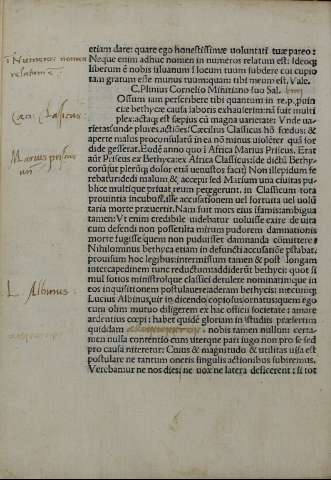 etiam dare: quare ego honestissimæ uoluntati tuæ pareo:
Neque enim adhuc nomen in numeros relatum est: Ideoq;
liberum é nobis siluanum í locum tuum subdere cui cupio
tam gratum esse munus tuum:quam tibi meum est. Vale.
C.Plinius Cornelio Minitiano suo Sal.
Ossum iam perscribere tibi quantum in
cæ bethycæ causa laboris exhauserim:
plex:actaq; est sæpius cú magna uarietate: Vnde ua
rietas:unde plures actióes: Cæcilius Classicus hó fœdus: &
aperte malus proconsulatú in ea nó minus uioléter quá sor
dide gesserat. Eodé anno quo í Africa Marius Priscus. Erat
aút Priscus ex Bethyca:ex Africa Classicus:
dolor etiá uenustos facit) Non illepidum fe
rebat:dedi malum & accepi: sed Marium una ciuitas pu
blice multiq; priuati reum peregerunt. in Classicum tota
prouintia incubuit.
morte præuertit. Nam fuit mors eius ísamis:ambigua
tamen: Vt enim credibile uidebatur uoluisse exire de uita
cum defendi non possetita mirum pudorem damnationis
morte fugisse quem non puduisset damnanda cómittere
Nihilominus bethyca etiam in defuncti accusatióe pstabat.
prouisum hoc legibus:intermissum tamen & post longam
intercapedinem tunc reductum:addiderút bethyci: quot si
mul socios ministrosque classici detulere nominatimque in
eos inquisitionem postulauere:aderam bethycis: mecumq;
Lucius Albinus,uir in dicendo copiosus:ornatus:quem ego
cum olim mutuo diligerem ex hac officii societate: amare
ardentius cœpi: habet quidé glorium in studiis præsertim
quiddam nobis tamen nullum certa
men nulla contentio cum uterque pari iugo non pro se sed
pro causa niteretur: Cuius & magnitudo & utilitas uisa est
postulare ne tantum oneris singulis actionibus subiremus.
Verebamur ne nos dies: ne uox ne latera deficerent: si tot
Numeros nomen
relatum é
Classicus
Marius priscus
L Albinus